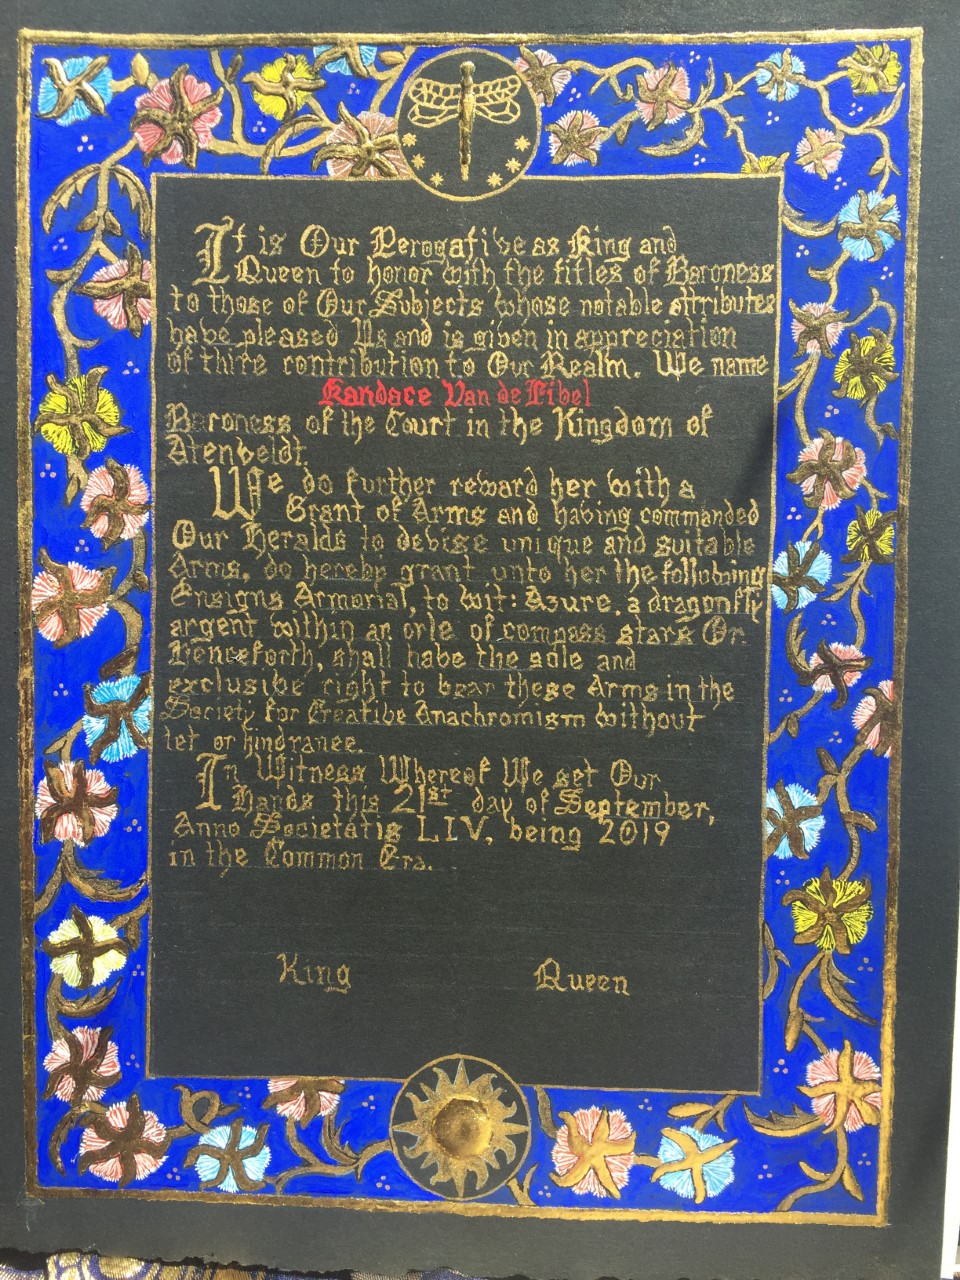 It is Our Perogative as King and
Queen to honor with the titles of Baroness
to those of Our Subjects whose notable attributes
have pleased Us and is given in appreciation
of thire contribution to Our Realm. We name
Kandace Van de Fibel
Baroness of the Court in the Kingdom of
Atenveldt.
We do further reward her with a
Grant of Arms and having commanded
Our Heralds to devise unique and suitable
Arms, do hereby grant unto her the following
Ensigns Armorial, to wit: Azure, a dragonfly
argent within an orle of compass stars Or.
Henceforth, shall have the sole and
exclusive right to bear these Arms in the
Society for Creative Anachromism without
let or hindrance.
In Witness Whereof We set Our
Hands this 21st day of September,
Anno Societatis LIV, being 2019
in the Common Era.
King Queen